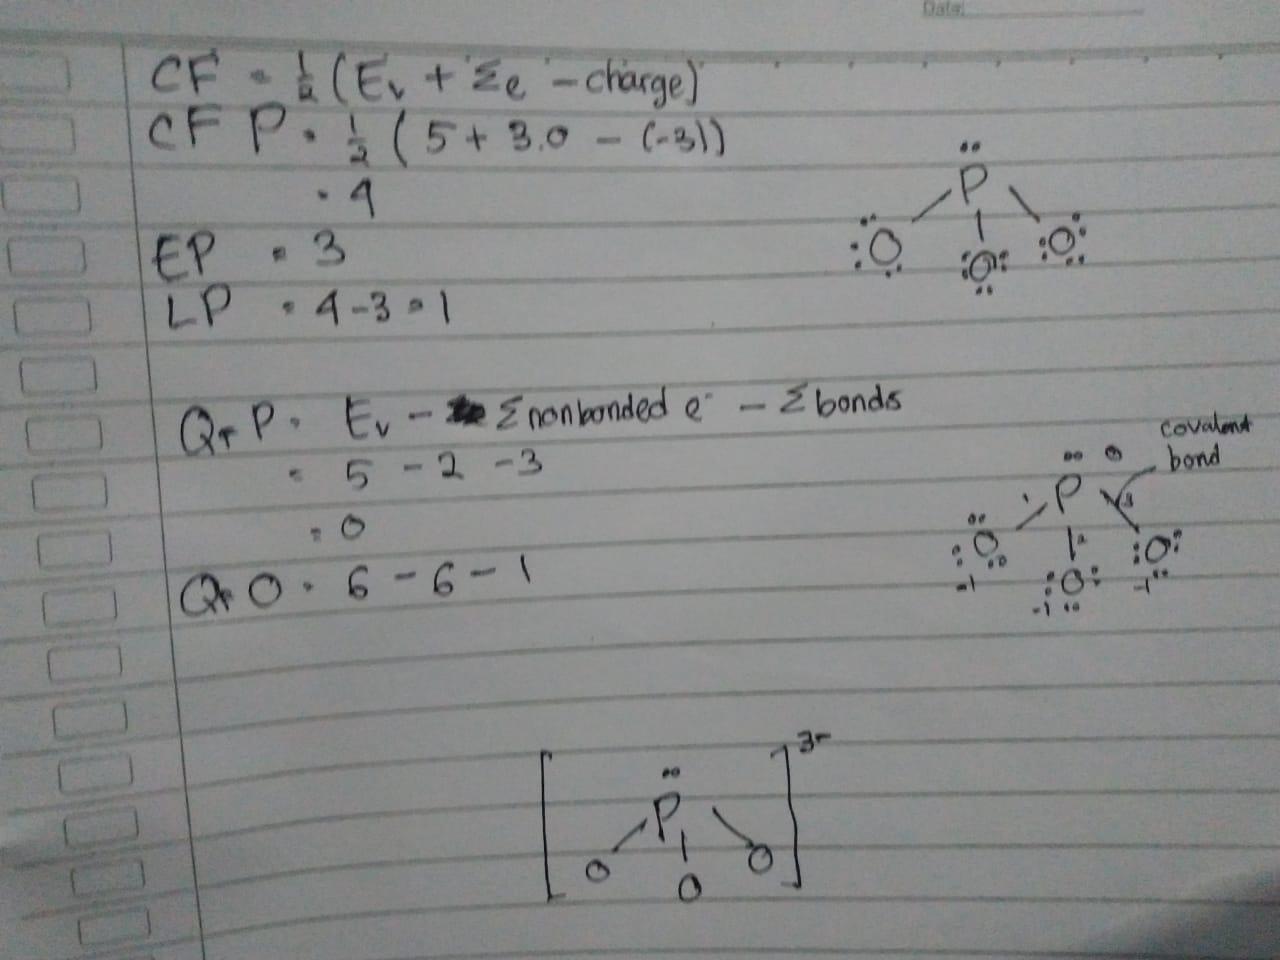 Date:
CF = ½ (Ev + Σe⁻ - charge)
CF P = ½ (5 + 3.0 - (-3))
= 4
EP = 3
LP = 4 - 3 = 1
P
O O O
QF P = Ev - Σ nonbonded e⁻ - Σ bonds
= 5 - 2 - 3
= 0
QF O = 6 - 6 - 1
covalent
bond
P
O O O
-1 -1 -1
3-
P
O O O